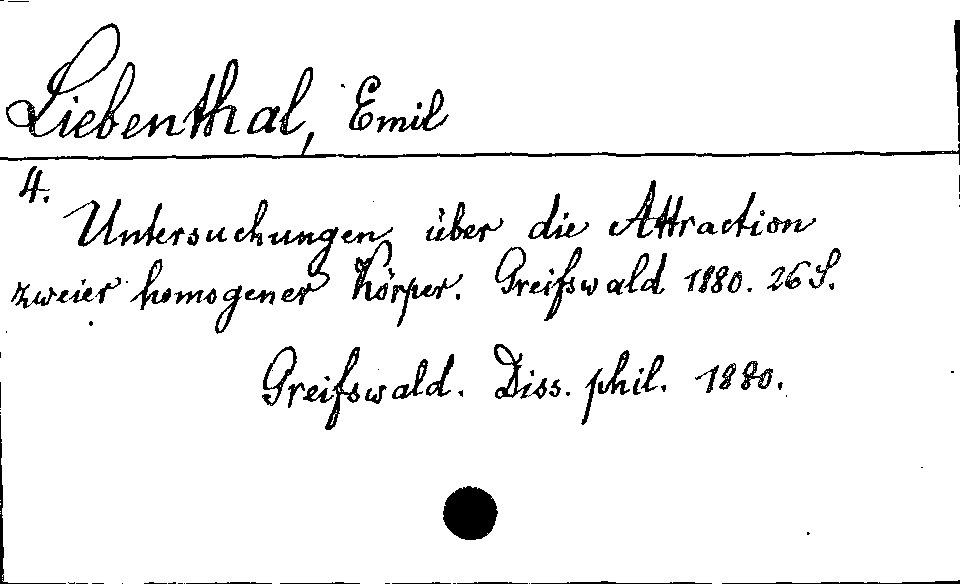 Liebenthal, Emil
4.
Untersuchungen über die Attraction
zweier homogener Körper. Greifswald 1880. 26 S.
Greifswald. Diss. phil. 1880.